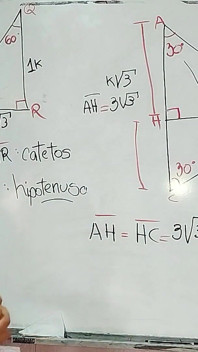 Q
60°
1k
R
√3
R: catetos
: hipotenusa
A
30°
k√3
AH = 3√3
H
30°
C
AH = HC = 3√3